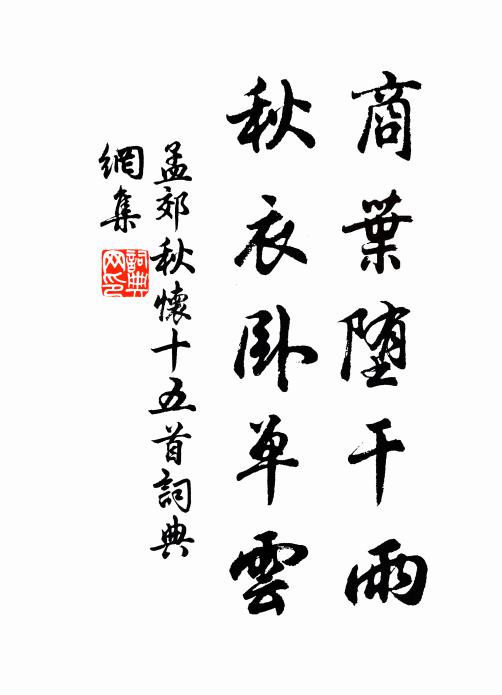 商葉堕干雨
秋衣卧单雲
孟郊秋懷十五首詞典
網集
詞典網印